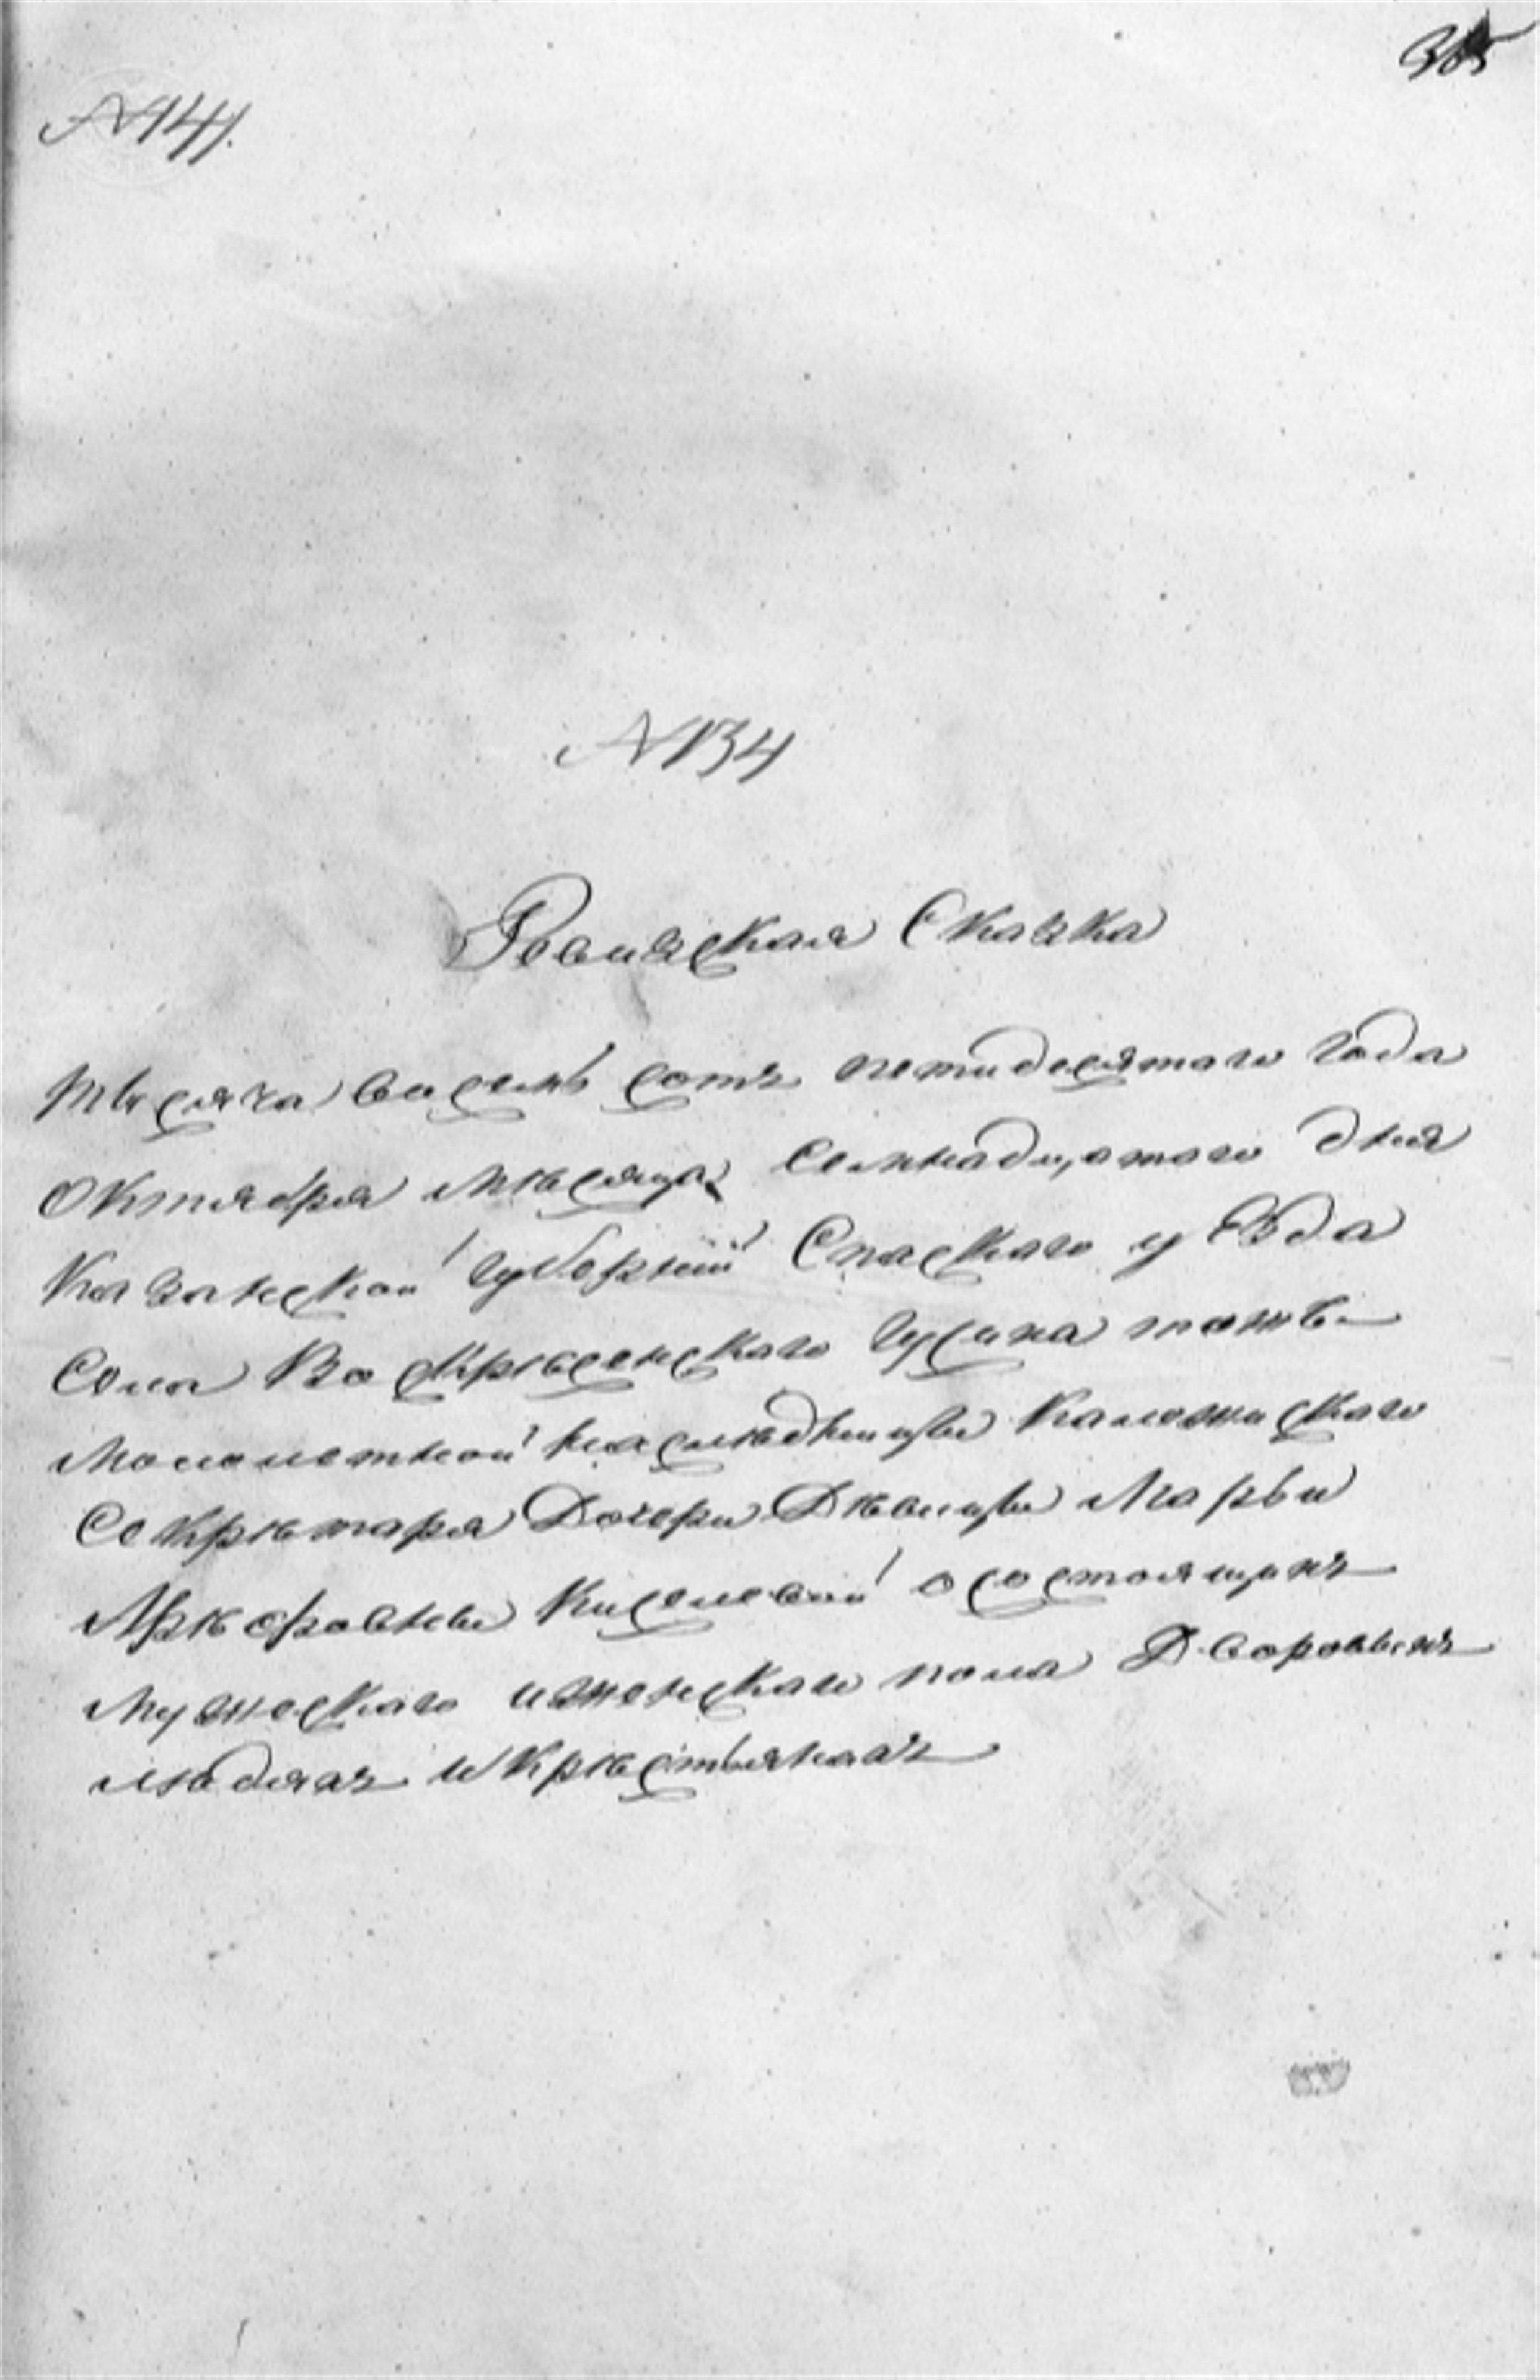 365
№ 141.
№ 134
Ревиzская Сказка
тысяча восемь сотъ петидесятаго года
Октября мѣсяца семнадцатаго дня
Казанской губернiи Спаскаго уѣзда
Села Воскрѣсенскаго Гусиха тожъ
малолетной наслѣдницы Калежискаго
Секрѣтаря Дочери Дѣвицы Марьи
Киселевой о состоящихъ
мужескаго и женскаго пола Дворовыхъ
людяхъ и крѣстьянахъ